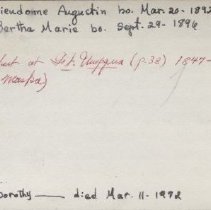 ieudonne Augustin bo. Mar. 20-1892
Bertha Marie bo. Sept. 29-1896
at Ft. Umpqua (p.38) 1847-
Dorothy — died Mar. 11-1972